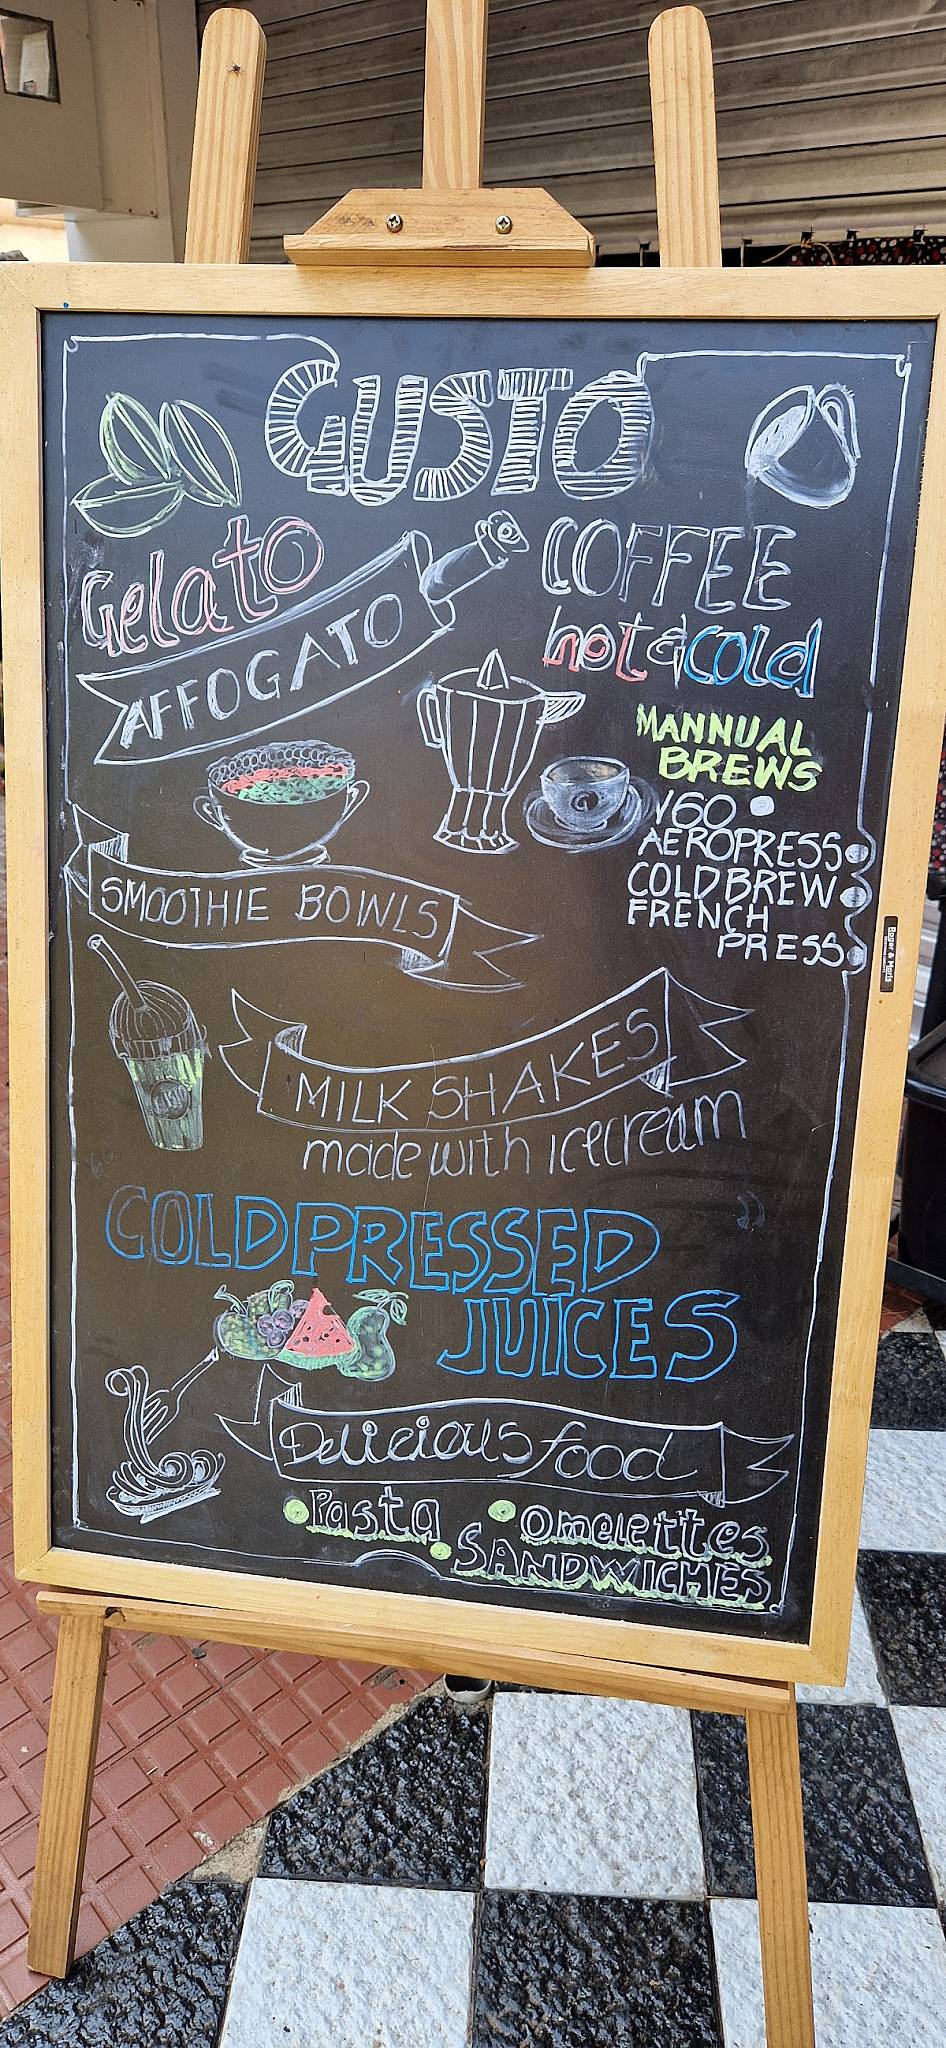 GUSTO
Gelato
AFFOGATO
COFFEE
hot & cold
MANNUAL
BREWS
V60
AEROPRESS
COLDBREW
FRENCH
PRESS
SMOOTHIE BOWLS
MILK SHAKES
made with icecream
COLDPRESSED
JUICES
Delicious food
Pasta
Omelettes
SANDWICHES